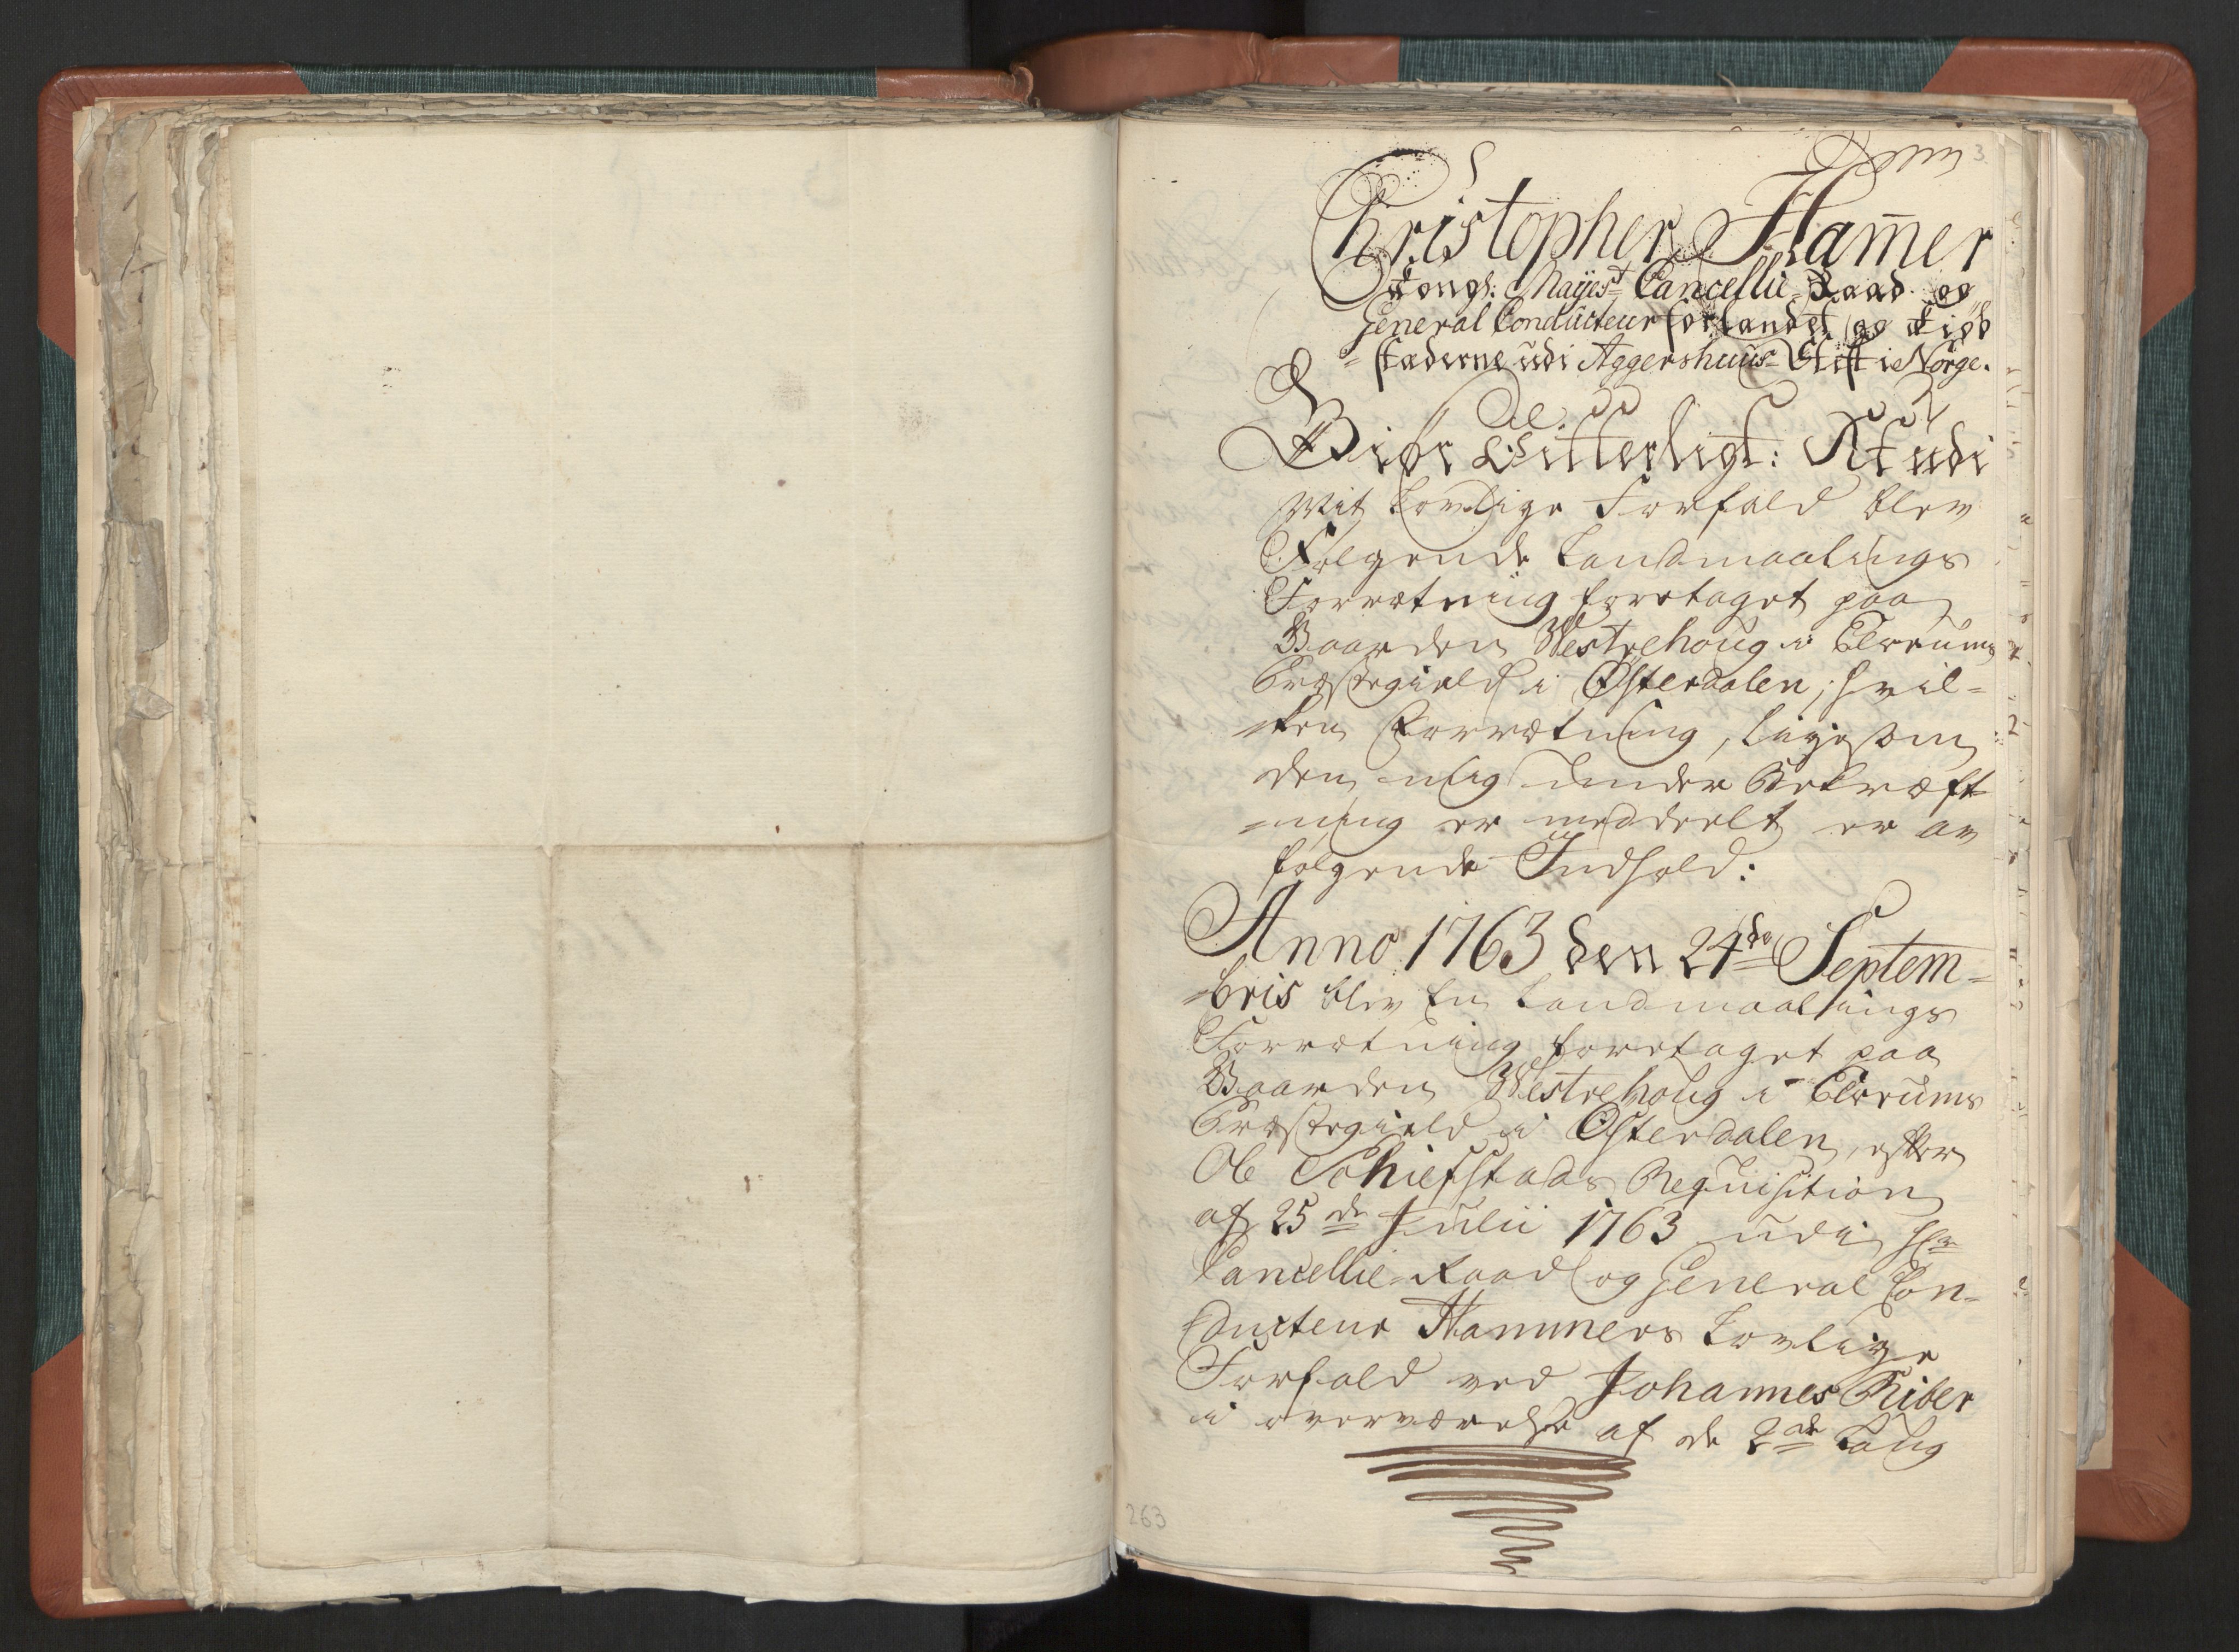 3.
Christopher Ham̄er
Kongl: Mayest: Cancellie-Raad og
General Conducteur for Landet og Kiøb
=stæderne udi Aggershuus-Stift i Norge.
Giør Vitterligt: At udi
Mit Lovlige Forfald blev
Følgende Landmaalings
Forretning foretaget paa
Gaarden Westrehoug i Elverums
Præstegield i Østerdalen, hvil=
=ken Forretning, ligesom
den mig under Bekræft
=ning er meddeelt er av
følgende Indhold:
Anno 1763 den 24de Septem=
=bris blev En Landmaalings
Forretning foretaget paa
Gaarden Westrehoug i Elverums
Præstegield i Østerdalen, efter
Ole Schiefstads Requisition
af 25de Julii 1763 udi Hr
Cancellie-Raad og General Con=
=ducteur Hammers Lovlige
Forfald ved Johannes Riber
i overværelse af de 2de Laug
263